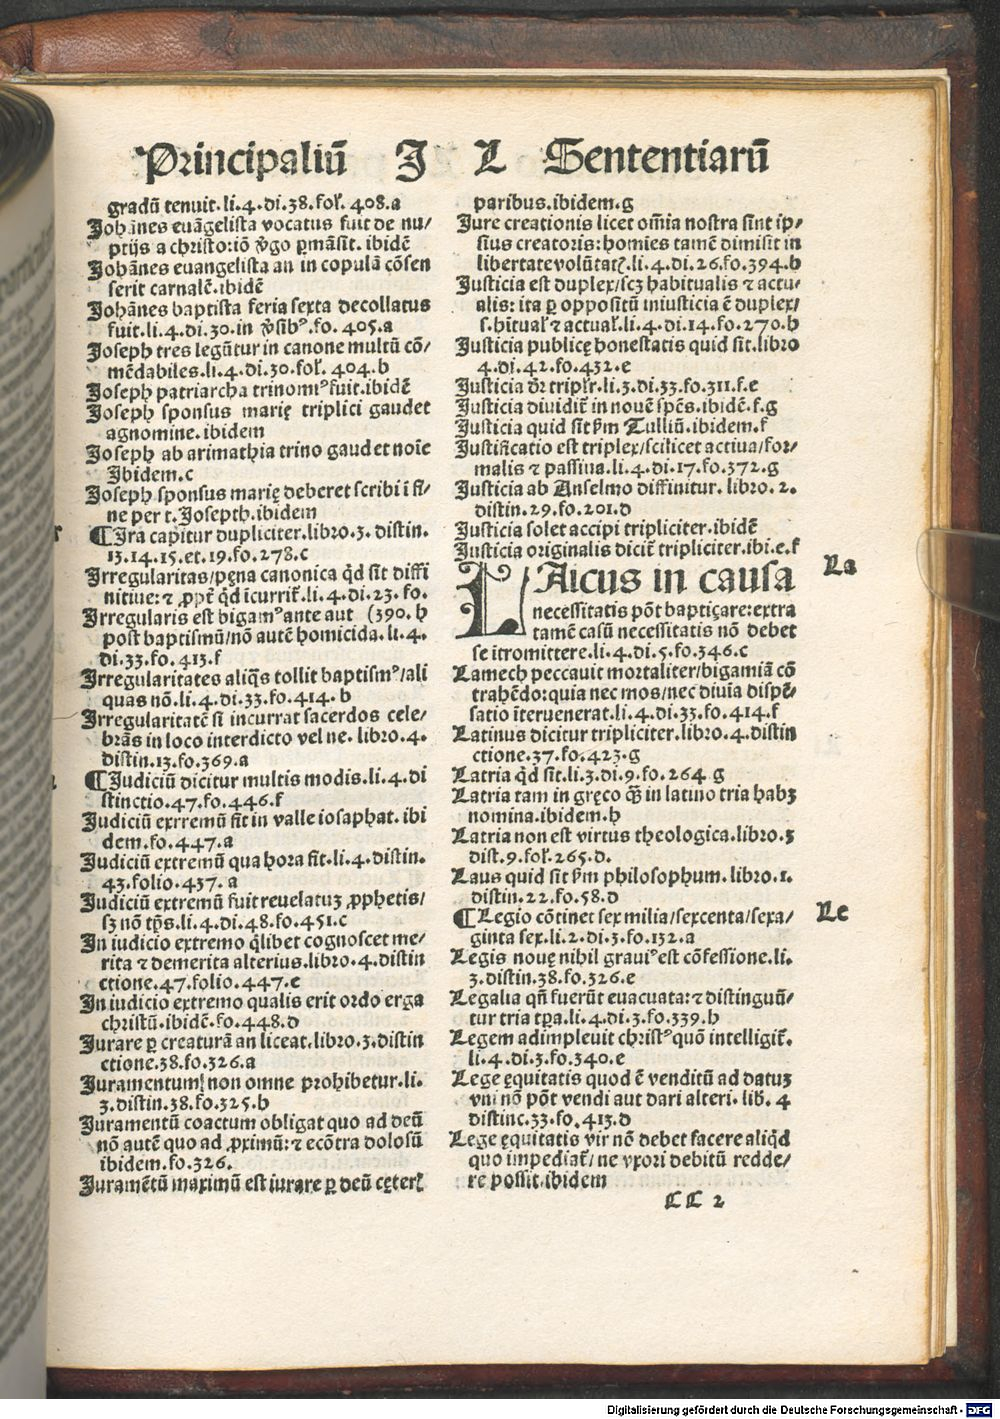 Principaliū J L Sententiarū
gradū tenuit.li.4.di.38.fol.408.a
Johānes euāgelista vocatus fuit de nu/
ptijs a christo:iō v̄go ꝑmāsit.ibidē
Johānes euangelista an in copulā cōsen
serit carnalē.ibidē
Johānes baptista feria sexta decollatus
fuit.li.4.di.30.in fo.405.a
Joseph tres legūtur in canone multū cō/
mēdabiles.li.4.di.30.fol.404.b
Joseph patriarcha trinomiꝰ fuit.ibidē
Joseph sponsus marię triplici gaudet
agnomine.ibidem
Joseph ab arimathia trino gaudet noīe
Jbidem.c
Joseph sponsus marię deberet scribi ī fi/
ne per t.Josepth.ibidem
¶Jra capitur dupliciter.libro.3.distin.
13.14.15.et.19.fo.278.c
Jrregularitas/pęna canonica qd̄ sit diffi
nitiue:⁊ ꝓpt̄ qd̄ īcurrit̄.li.4.di.23.fo.
Jrregularis est bigamꝰ ante aut (390.h
post baptismū/nō autē homicida.li.4.
di.33.fo.413.f
Jrregularitates aliq̄s tollit baptismꝰ/ali
quas nō.li.4.di.33.fo.414.b
Jrregularitatē si incurrat sacerdos cele/
brās in loco interdicto vel ne.libro.4.
distin.13.fo.369.a
¶Judiciū dicitur multis modis.li.4.di
stinctio.47.fo.446.f
Judiciū exrremū fit in valle iosaphat.ibi
dem.fo.447.a
Judiciū extremū qua hora fit.li.4.distin.
43.folio.437.a
Judiciū extremū fuit reuelatuꝫ ꝓphetis/
sꝫ nō tp̄s.li.4.di.48.fo.451.c
In iudicio extremo q̄libet cognoscet me/
rita ⁊ demerita alterius.libro.4.distin
ctione.47.folio.447.e
In iudicio extremo qualis erit ordo erga
christū.ibidē.fo.448.d
Jurare ꝑ creaturā an liceat.libro.3.distin
ctione.38.fo.326.a
Juramentum non omne prohibetur.li.
3.distin.38.fo.325.b
Juramentū coactum obligat quo ad deū
nō autē quo ad ꝓximū:⁊ ecōtra dolosū
ibidem.fo.326.
Juramētū maximū est iurare ꝑ deū cęterꝭ
paribus.ibidem.g
Jure creationis licet om̄ia nostra sint ip/
sius creatoris:homies tamē dimisit in
libertate volūtatꝭ.li.4.di.26.fo.394.b
Justicia est duplex/scꝫ habitualis ⁊ actu/
alis:ita ꝑ oppositū iniusticia ē duplex/
s.hitual̄ ⁊ actual̄.li.4.di.14.fo.270.h
Justicia publicę honestatis quid sit.libro
4.di.42.fo.432.e
Justicia dr̄ tripl̄r.li.3.di.33.fo.311.f.e
Justicia diuidit̄ in nouē sp̄es.ibidē.f.g
Justicia quid sit ẜm Tulliū.ibidem.f
Justificatio est triplex/scilicet actiua/for/
malis ⁊ passiua.li.4.di.17.fo.372.g
Justicia ab Anselmo diffinitur.libro.2.
distin.29.fo.201.d
Justicia solet accipi tripliciter.ibidē
Justicia originalis dicit̄ tripliciter.ibi.e.f
La
LAicus in causa
necessitatis pōt baptiçare:extra
tamē casū necessitatis nō debet
se ītromittere.li.4.di.5.fo.346.c
Lamech peccauit mortaliter/bigamiā cō
trahēdo:quia nec mos/nec diuīa dispē/
satio īteruenerat.li.4.di.33.fo.414.f
Latinus dicitur tripliciter.libro.4.distin
ctione.37.fo.423.g
Latria qd̄ sit.li.3.di.9.fo.264 g
Latria tam in gręco q̄ꝫ in latino tria habꝫ
nomina.ibidem.h
Latria non est virtus theologica.libro.3
dist.9.fol.265.d.
Laus quid sit ẜm philosophum.libro.1.
distin.22.fo.58.d
Le
¶Legio cōtinet sex milia/sexcenta/sexa/
ginta sex.li.2.di.3.fo.132.a
Legis nouę nihil grauiꝰ est cōfessione.li.
3.distin.38.fo.326.e
Legalia qn̄ fuerūt euacuata:⁊ distinguū/
tur tria tp̄a.li.4.di.3.fo.339.b
Legem adimpleuit christꝰ quō intelligit̄.
li.4.di.3.fo.340.e
Lege ęquitatis quod ē venditū ad datuꝫ
vni nō pōt vendi aut dari alteri.lib.4
distinc.33.fo.413.d
Lege ęquitatis vir nō debet facere aliqd̄
quo impediat̄/ne vxori debitū redde/
re possit.ibidem
CC 2
Digitalisierung gefördert durch die Deutsche Forschungsgemeinschaft - DFG